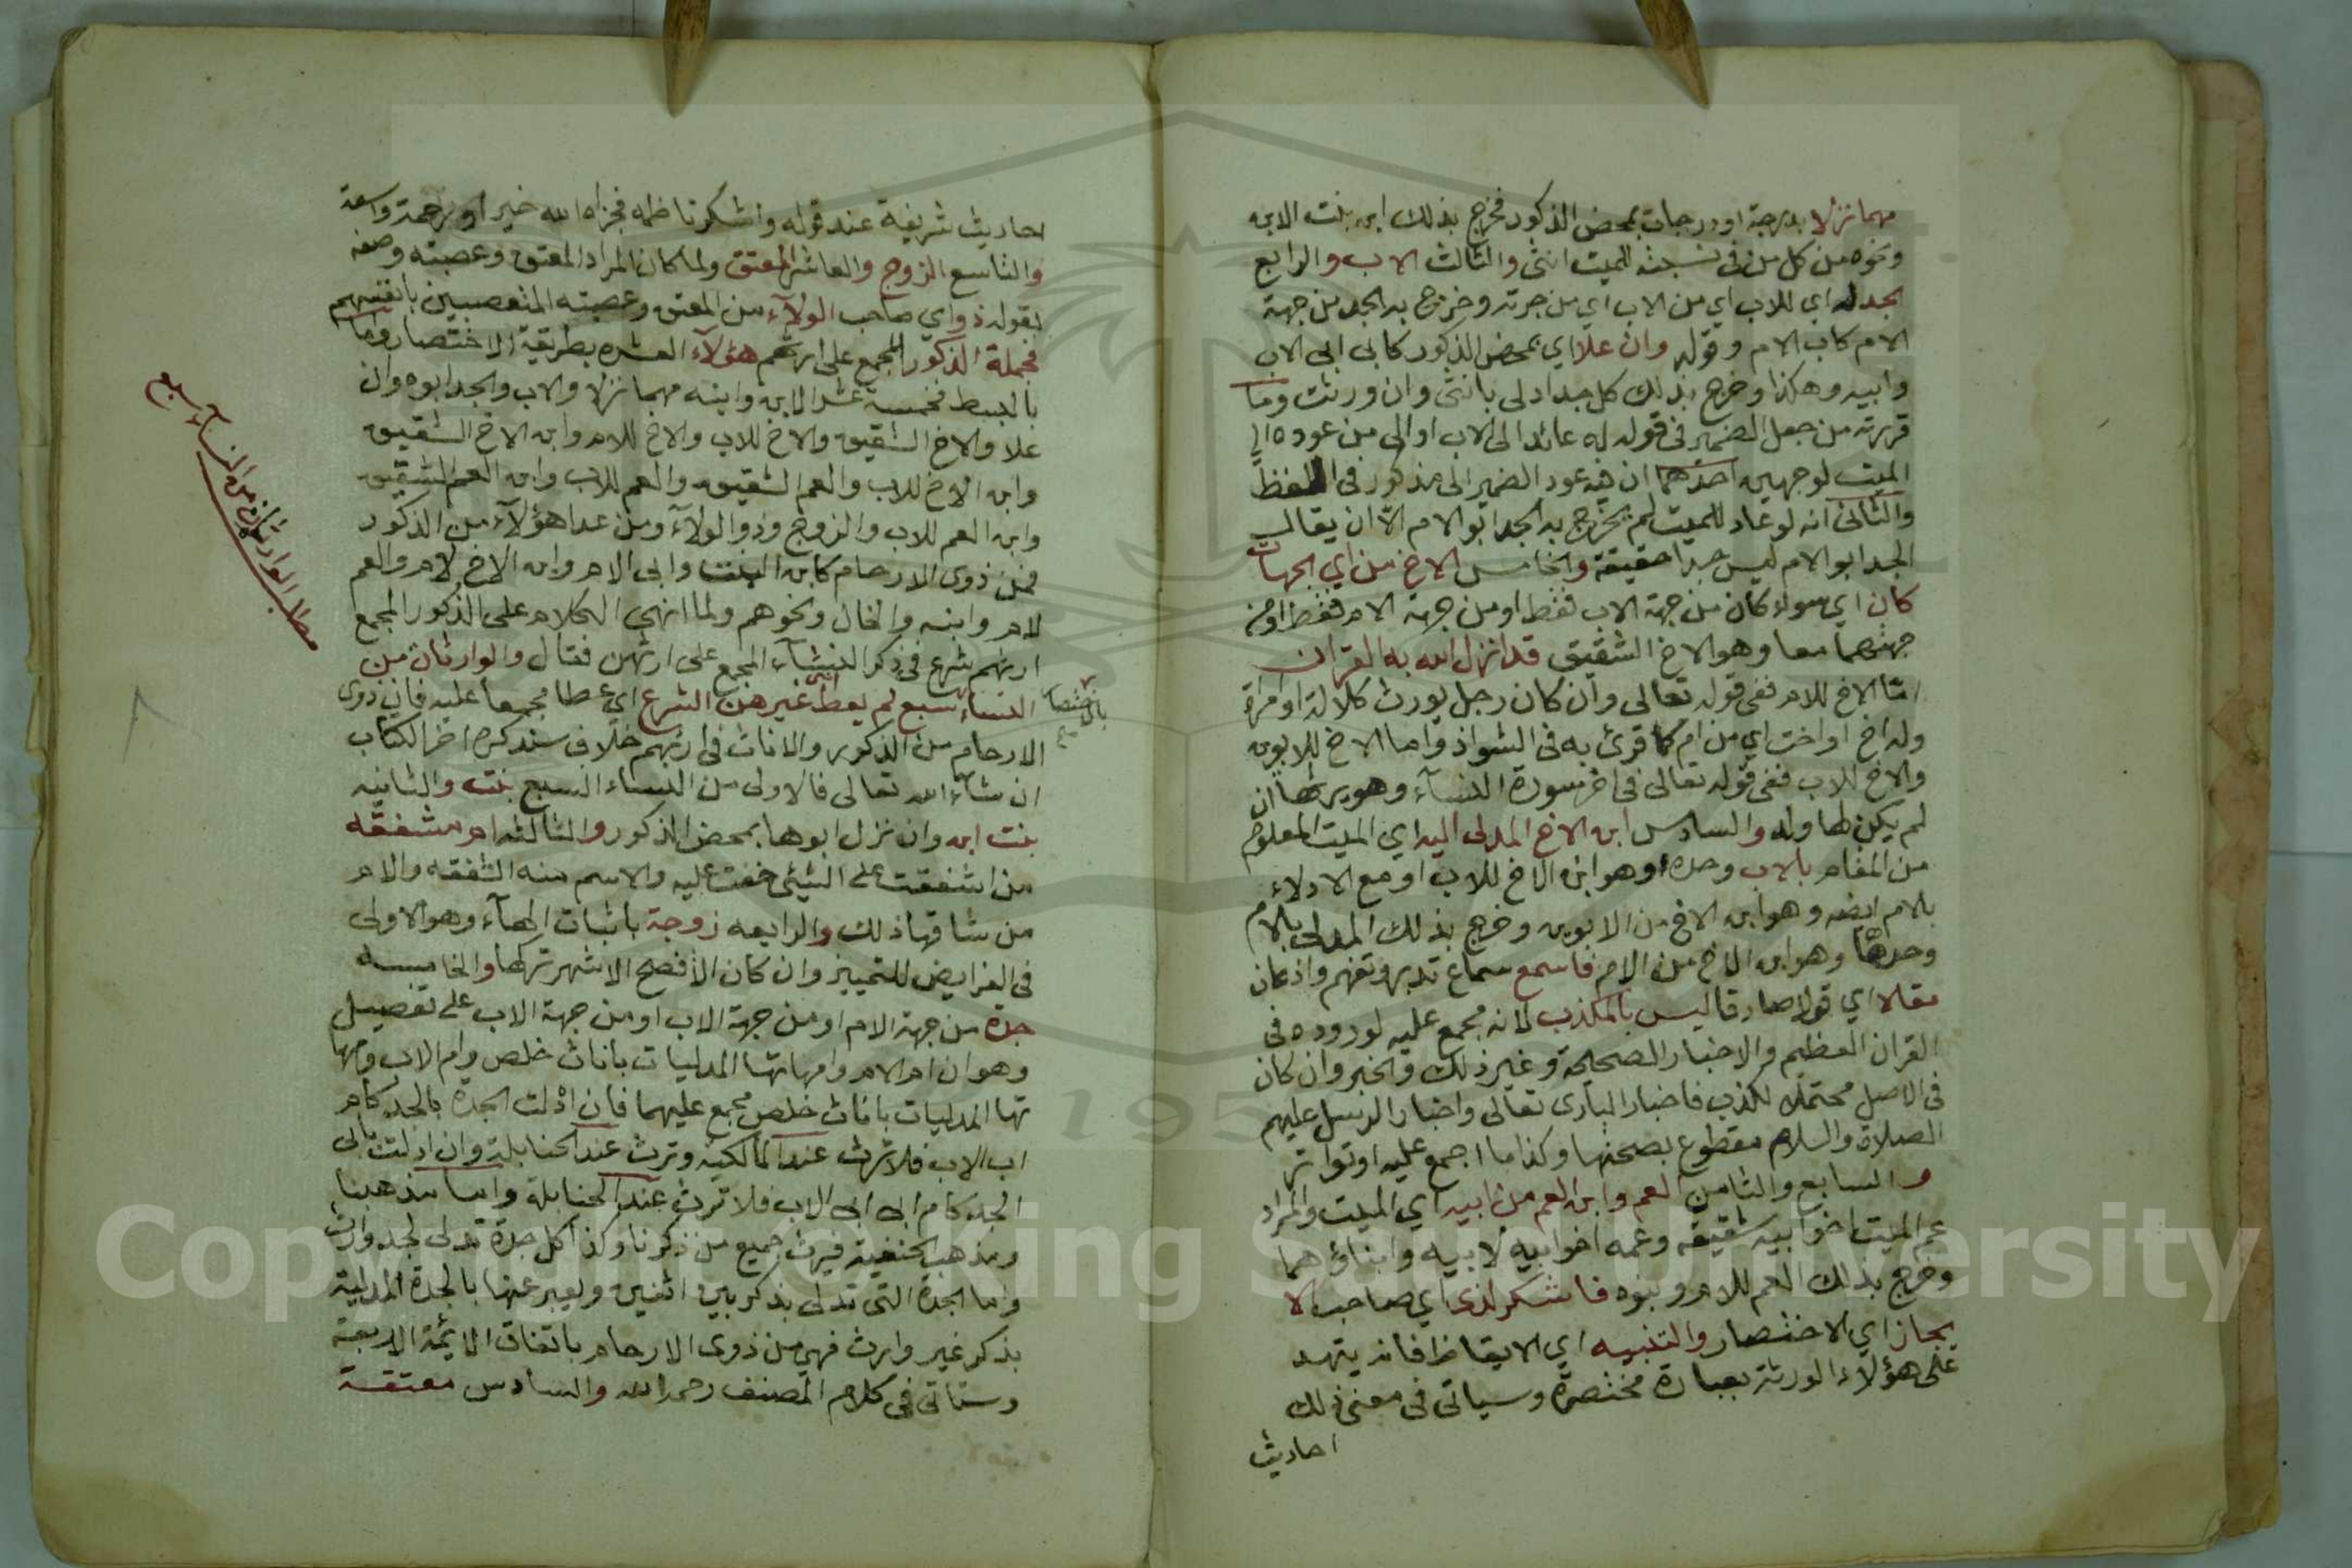 مهما نزلا بدرجة او درجات بمحض الذكور فخرج بذلك ابن بنت الابن
ونحوه من كل من في نسبته للميت انثى والثالث الاب والرابع
الجد له اي للاب اي من الاب اي من جهته وخرج به الجد من جهة
الام كاب الام وقوله وان علا اي بمحض الذكور كابي ابي الاب
وابيه وهكذا وخرج بذلك كل جد ادلى بانثى وان ورثت وما
قررته من جعل الضمير في قوله له عائدا الى الاب اولى من عوده الى
الميت لوجهين احدهما ان فيه عود الضمير الى مذكور في اللفظ
والثاني انه لو عاد للميت لم يخرج به الجد ابو الام الا ان يقال
الجد ابو الام ليس جدا حقيقة والخامس الاخ من اي الجهات
كان اي سواء كان من جهة الاب فقط او من جهة الام فقط او من
جهتهما معا وهو الاخ الشقيق قد انزل الله به القرآن
اما الاخ للام ففي قوله تعالى وان كان رجل يورث كلالة او امراة
وله اخ او اخت اي من ام كما قرئ به في الشواذ واما الاخ للابوين
والاخ للاب ففي قوله تعالى في اخر سورة النساء وهو يرثها ان
لم يكن لها ولد والسادس ابن الاخ المدلى اليه اي الميت المعلوم
من المقام بالاب وحده وهو ابن الاخ للاب او مع الادلاء
بالام ايضه وهو ابن الاخ من الابوين وخرج بذلك المدلى بالام
وحدها وهو ابن الاخ من الام فاسمع سماع تدبر وتفهم واذعان
مقالا اي قولا صادقا ليس بالمكذب لانه مجمع عليه لوروده في
القران العظيم والاخبار الصحيحة وغير ذلك والخبر وان كان
في الاصل محتملا للكذب فاخبار الباري تعالى واخبار الرسل عليهم
الصلاة والسلام مقطوع بصحتها وكذا ما اجمع عليه او تواتر
والسابع والثامن العم وابن العم من ابيه اي الميت والمراد
عم الميت اخو ابيه شقيقه وعمه اخو ابيه لابيه وابناؤهما
وخرج بذلك العم للام وبنوه فاشكر لذي اي صاحب الا
يجاز اي الاختصار والتنبيه اي الايقاظ فانه ينبه
على هؤلاء الورثة بعبارة مختصرة وسياتي في معنى ذلك
احاديث
احاديث شريفة عند قوله واشكر ناظمه فجزاه الله خيرا ورحمة واسعة
والتاسع الزوج والعاشر المعتق ولما كان المراد المعتق وعصبته وصفه
بقوله ذو اي صاحب الولاء من المعتق وعصبته المتعصبين بانفسهم
فجملة الذكور المجمع على ارثهم هؤلاء العشره بطريقة الاختصار وما
بالبسط فخمسة عشر الابن وابنه مهما نزلا والاب والجد ابوه وان
علا والاخ الشقيق والاخ للاب والاخ للام وابن الاخ الشقيق
وابن الاخ للاب والعم الشقيق والعم للاب وابن العم الشقيق
وابن العم للاب والزوج وذو الولاء ومن عدا هؤلاء من الذكور
فمن ذوي الارحام كابن البنت وابي الام وابن الاخ لام والعم
للام وابنه والخال ونحوهم ولما انهى الكلام على الذكور المجمع
ارثهم شرع في ذكر النساء المجمع على ارثهن فقال والوارثات من
النساء سبع لم يعط انثى غيرهن الشرع اي عطا مجمعا عليه فان ذوي
بالاختصار
الارحام من الذكور والاناث في ارثهم خلاف سنذكره اخر الكتاب
ان شاء الله تعالى فالاولى من النساء السبع بنت والثانيه
بنت ابن وان نزل ابوها بمحض الذكور والثالثه ام مشفقه
من اشفقت على الشيئ خفت عليه والاسم منه الشفقه والام
من شانها ذلك والرابعه زوجة باثبات الهاء وهو الاولى
في الفرايض للتمييز وان كان الافصح الاشهر تركها والخامسه
جدة من جهة الام او من جهة الاب على تفصيل
وهو ان ام الام وامهاتها المدليات باناث خلص وام الاب وامها
تها المدليات باناث خلص مجمع عليهما فان ادلت الجدة بالجد كام
اب الاب فلا ترث عند المالكيه وترث عند الحنابلة وان ادلت بابي
الجد كام ابي ابي الاب فلا ترث عند الحنابلة واما مذهبنا
ومذهب الحنفية فيرث جميع من ذكرنا وكذا كل جدة تدلي لجد وارث
واما الجدة التي تدلي بذكر بين انثيين ويعبر عنها بالجدة المدلية
بذكر غير وارث فهي من ذوي الارحام باتفاق الائمة الاربعة
وستاتي في كلام المصنف رحمه الله والسادس معتقة
مطلب الوارثات من النساء سبع
Copyright © King Saud University
195